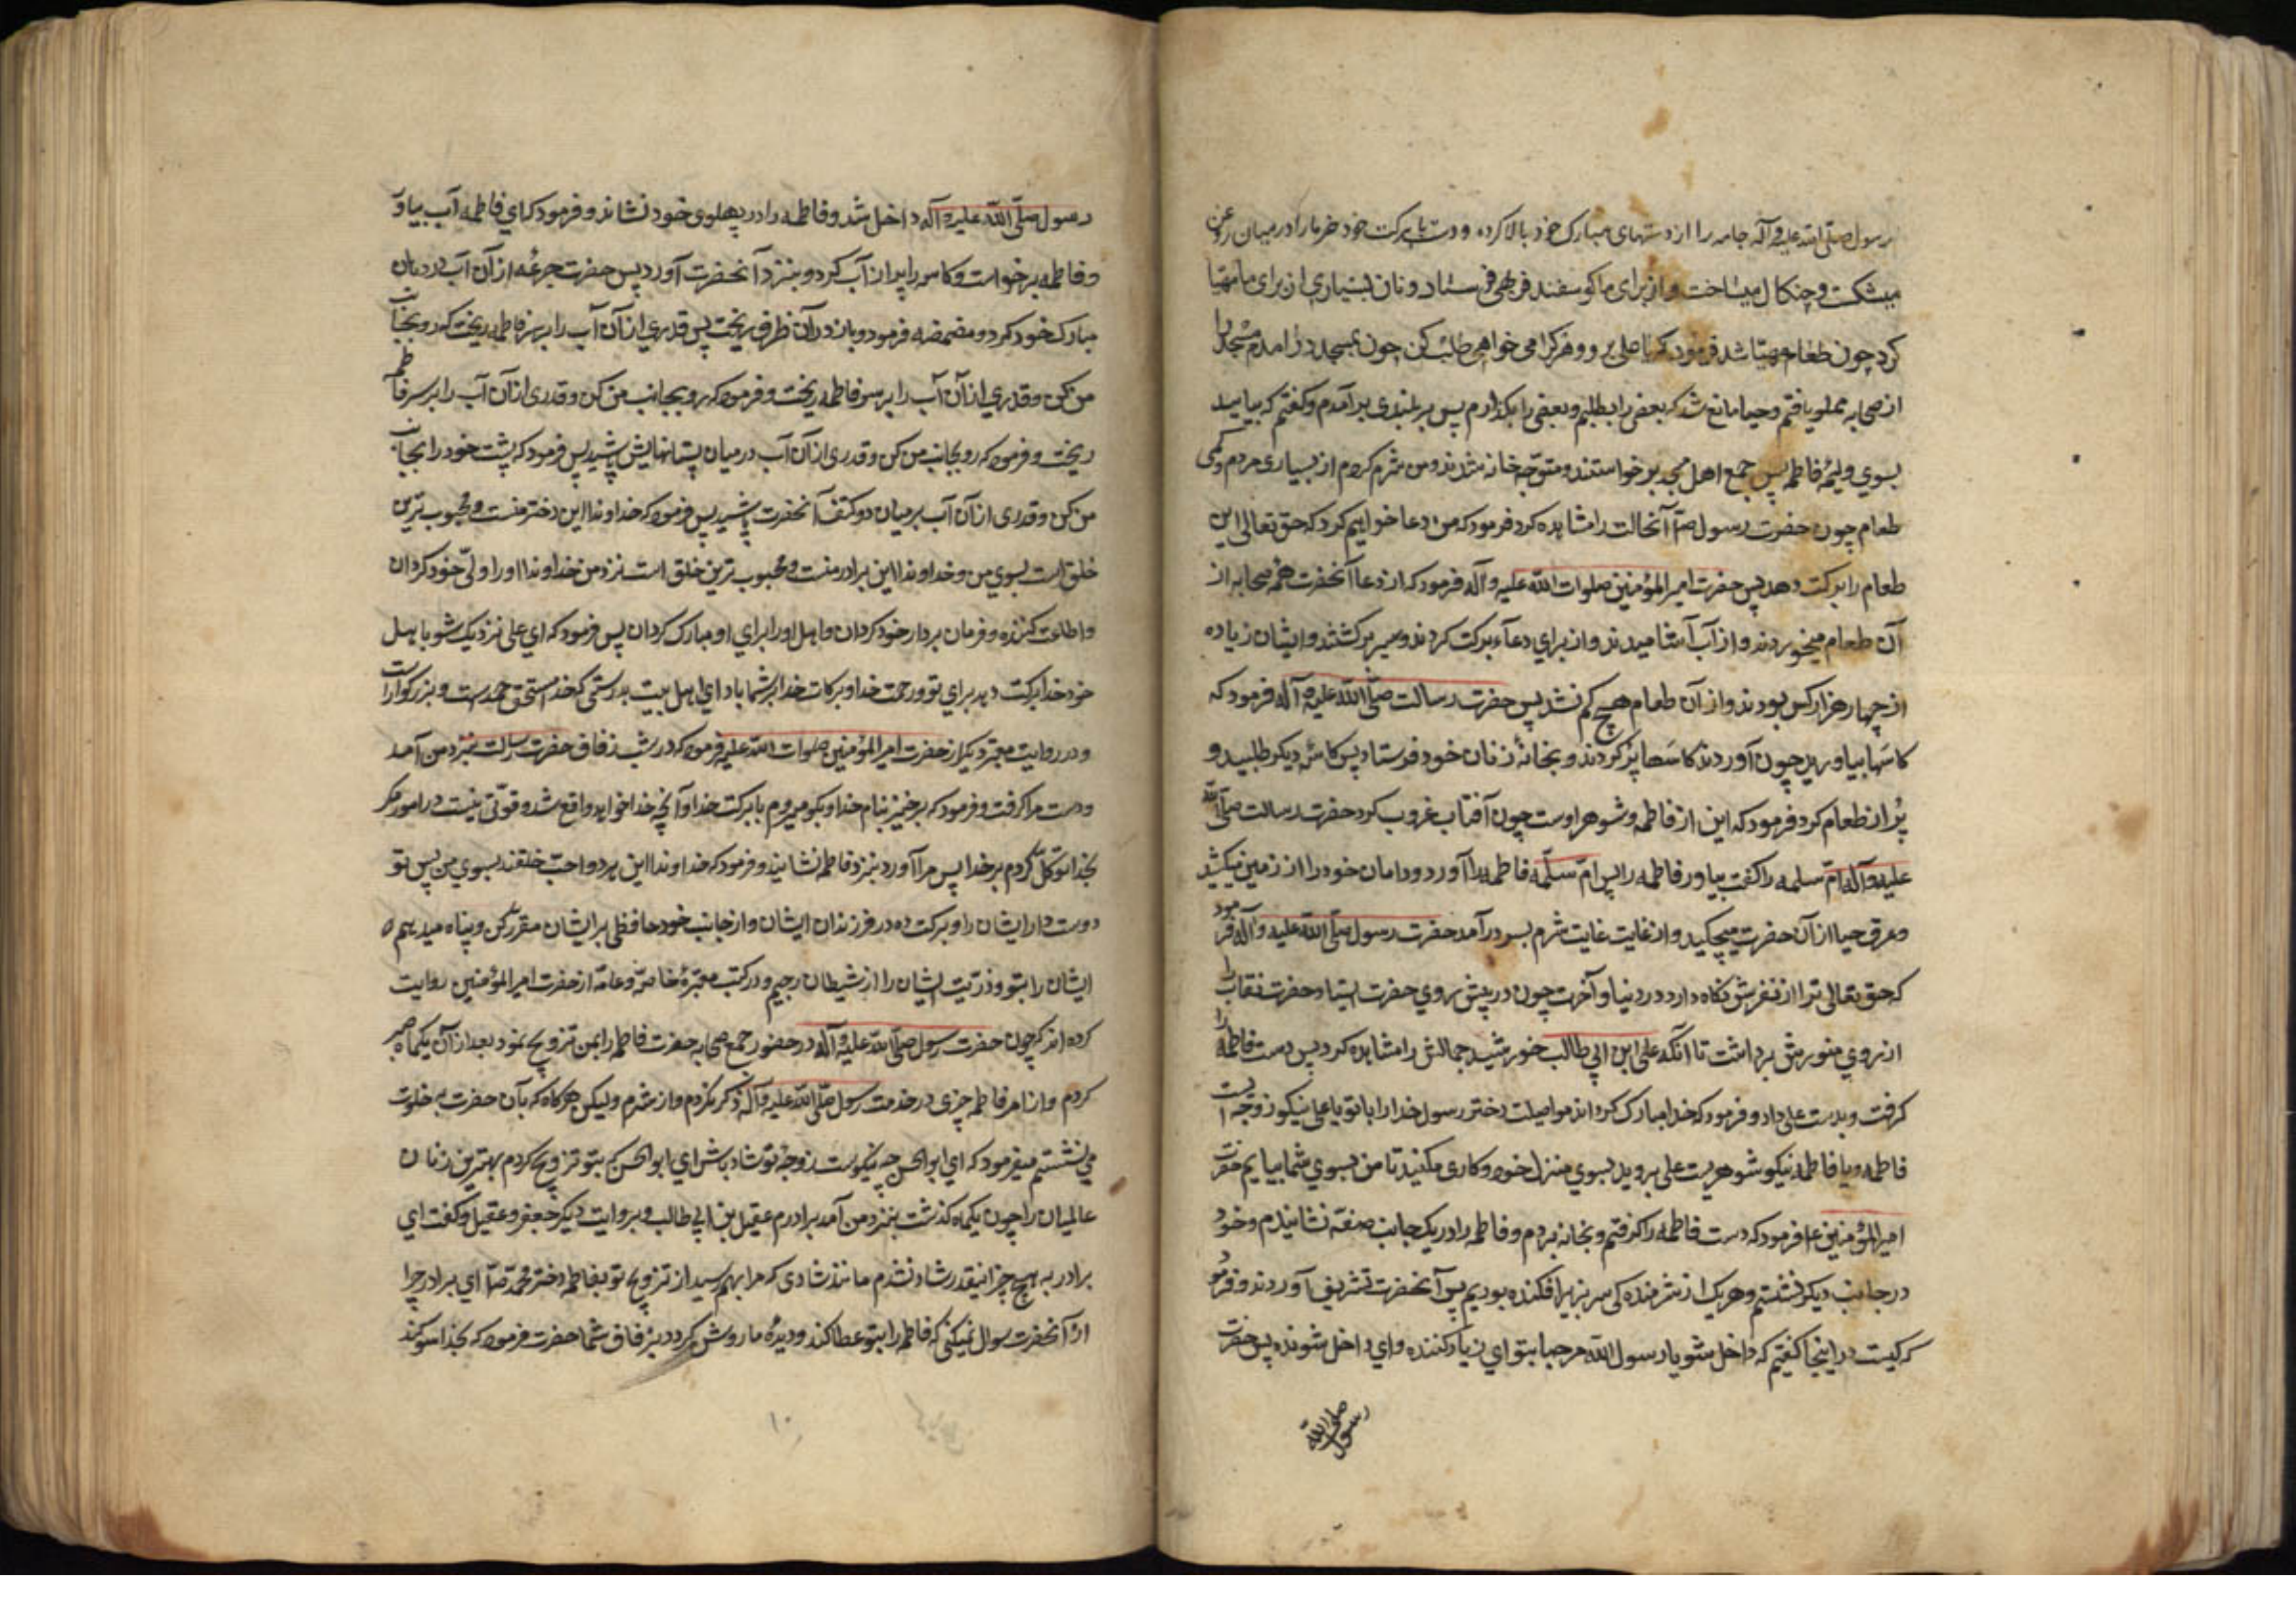 رسول صلی الله علیه و آله جامه را از دستهای مبارک خود بالا کرده و دست با برکت خود خرما را در میان روغن
میشکست و چنکال میساخت و از برای ما کوسفند فربهی فرستاد و نان بسیاری از برای ما مهیا
کرد چون طعام مهیا شد فرمود که یا علی برو و هر کرا می خواهی طلب کن چون بمسجد درآمدم مسجد را
از صحابه مملو یافتم و حیا مانع شد که بعضی را بطلبم و بعضی را بکذارم پس بر بلندی برآمدم و کفتم که بیایید
بسوی ولیمه فاطمه پس جمع اهل مسجد برخواستند و متوجه خانه شدند و من شرم کردم از بسیاری مردم و کمی
طعام چون حضرت رسول صلی آنحالت را مشاهده کرد فرمود که من دعا خواهم کرد که حق تعالی این
طعام را برکت دهد پس حضرت امیر المؤمنین صلوات الله علیه و آله فرمود که از دعا آنحضرت همه صحابه از
آن طعام میخوردند و از آب آشامیدند و از برای دعاء برکت کردند و سیر برکشتند و ایشان زیاده
از چهار هزار کس بودند و از آن طعام هیچ کم نشد پس حضرت رسالت صلی الله علیه و آله فرمود که
کاسها بیاورید چون آوردند کاسها پر کردند و بخانه زنان خود فرستاد پس کاسه دیکر طلبید و
پر از طعام کرد فرمود که این از فاطمه و شوهر اوست چون آفتاب غروب کرد حضرت رسالت صلی الله
علیه و آله ام سلمه را کفت بیاور فاطمه را پس ام سلمه فاطمه را آورد و دامان خود را از زمین میکشید
و عرق حیا از آن حضرت میچکید و از غایت غایت شرم بسر درآمد حضرت رسول صلی الله علیه و آله فرمود
که حق تعالی ترا از لغزش نکاه دارد در دنیا و آخرت چون در پیش روی حضرت ایستاد حضرت نقاب را
از روی منورش برداشت تا آنکه علی ابن ابی طالب خورشید جمالش را مشاهده کرد پس دست فاطمه را
کرفت و بدست علی داد و فرمود که خدا مبارک کرداند مواصلت دختر رسول خدا را با تو یا علی نیکو زوجه ایست
فاطمه و یا فاطمه نیکو شوهریست علی بروید بسوی منزل خود و کاری مکنید تا من بسوی شما بیایم حضرت
امیر المؤمنین ع فرمود که دست فاطمه را کرفتم و بخانه بردم و فاطمه را در یک جانب صفه نشانیدم و خود
در جانب دیکر نشستم و هر یک از شرمنده کی سر بزیر افکنده بودیم پس آنحضرت تشریف آوردند و فرمود
که کیست در اینجا کفتیم که داخل شو یا رسول الله مرحبا بتو ای زیارت کننده و ای داخل شونده پس حضرت
رسول صلی الله
رسول صلی الله علیه و آله داخل شد و فاطمه را در پهلوی خود نشاند و فرمود که ای فاطمه آب بیاور
و فاطمه برخواست و کاسه را پر از آب کرد و بنزد آنحضرت آورد پس حضرت جرعه از آن آب در دهان
مبارک خود کرد و مضمضه فرمود و باز در آن ظرف ریخت پس قدری از آن آب را بر سر فاطمه ریخت که رو بجانب
من کن و قدری از آن آب را بر سر فاطمه ریخت و فرمود که رو بجانب من کن و قدری از آن آب را بر سر فاطمه
ریخت و فرمود که رو بجانب من کن و قدری از آن آب در میان پستانهایش پاشید پس فرمود که پشت خود را بجانب
من کن و قدری از آن آب بر میان دو کتف آنحضرت پاشید پس فرمود که خداوندا این دختر منست و محبوب ترین
خلق است بسوی من و خداوندا این برادر منست و محبوب ترین خلق است نزد من خداوندا او را ولی خود کردان
و اطاعت کننده و فرمان بردار خود کردان و اهل او را برای او مبارک کردان پس فرمود که ای علی نزدیک شو با اهل
خود خدا برکت دهد برای تو و رحمت خدا و برکات خدا بر شما باد ای اهل بیت بدرستی که خدا مستحق حمد است و بزرکوار است
و در روایت معتبر دیکر از حضرت امیر المؤمنین صلوات الله علیه فرمود که در شب زفاف حضرت رسالت بنزد من آمد
و دست مرا کرفت و فرمود که برخیز بنام خدا و بکو میروم با برکت خدا و آنچه خدا خواهد واقع شد و قوتی نیست در امور مکر
بخدا توکل کردم بر خدا پس مرا آورد بنزد فاطمه نشانید و فرمود که خداوندا این هر دو احب خلقند بسوی من پس تو
دوست دار ایشان را و برکت ده در فرزندان ایشان و از جانب خود حافظی بر ایشان مقرر کن و پناه میدهم
ایشان را بتو و ذریت ایشان را از شیطان رجیم و در کتب معتبره خاصه و عامه از حضرت امیر المؤمنین روایت
کرده اند که چون حضرت رسول صلی الله علیه و آله در حضور جمع صحابه حضرت فاطمه را بمن تزویج نمود بعد از آن یکماه صبر
کردم و از امر فاطمه چیزی در خدمت رسول صلی الله علیه و آله ذکر نکردم و از شرم و لیکن هرکاه که بآن حضرت بخلوت
می نشستم میفرمود که ای ابو الحسن چه نیکوست زوجه تو شاد باش ای ابو الحسن که بتو تزویج کردم بهترین زنان
عالمیان را چون یکماه کذشت بنزد من آمد برادرم عقیل بن ابی طالب و بروایت دیکر جعفر و عقیل و کفت ای
برادر به هیچ چیز اینقدر شاد نشدم مانند شادی که مرا بهم رسید از تزویج تو بفاطمه دختر محمد ص ای برادر چرا
از آنحضرت سوال نمیکنی که فاطمه را بتو عطا کند و دیده ما روشن کردد بزفاف شما حضرت فرمود که بخدا سوکند
۱۰